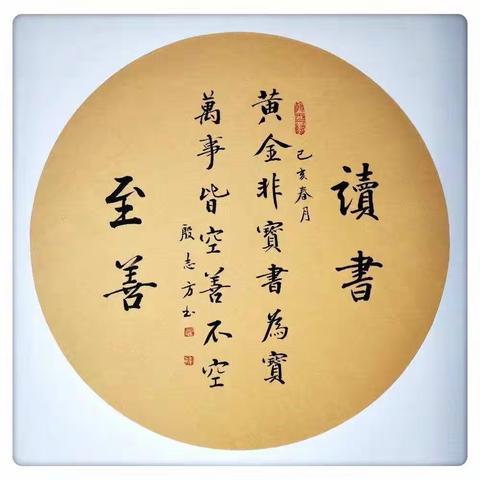 讀書
己亥春月
黃金非寶書為寶
萬事皆空善不空
殷志方书
至善